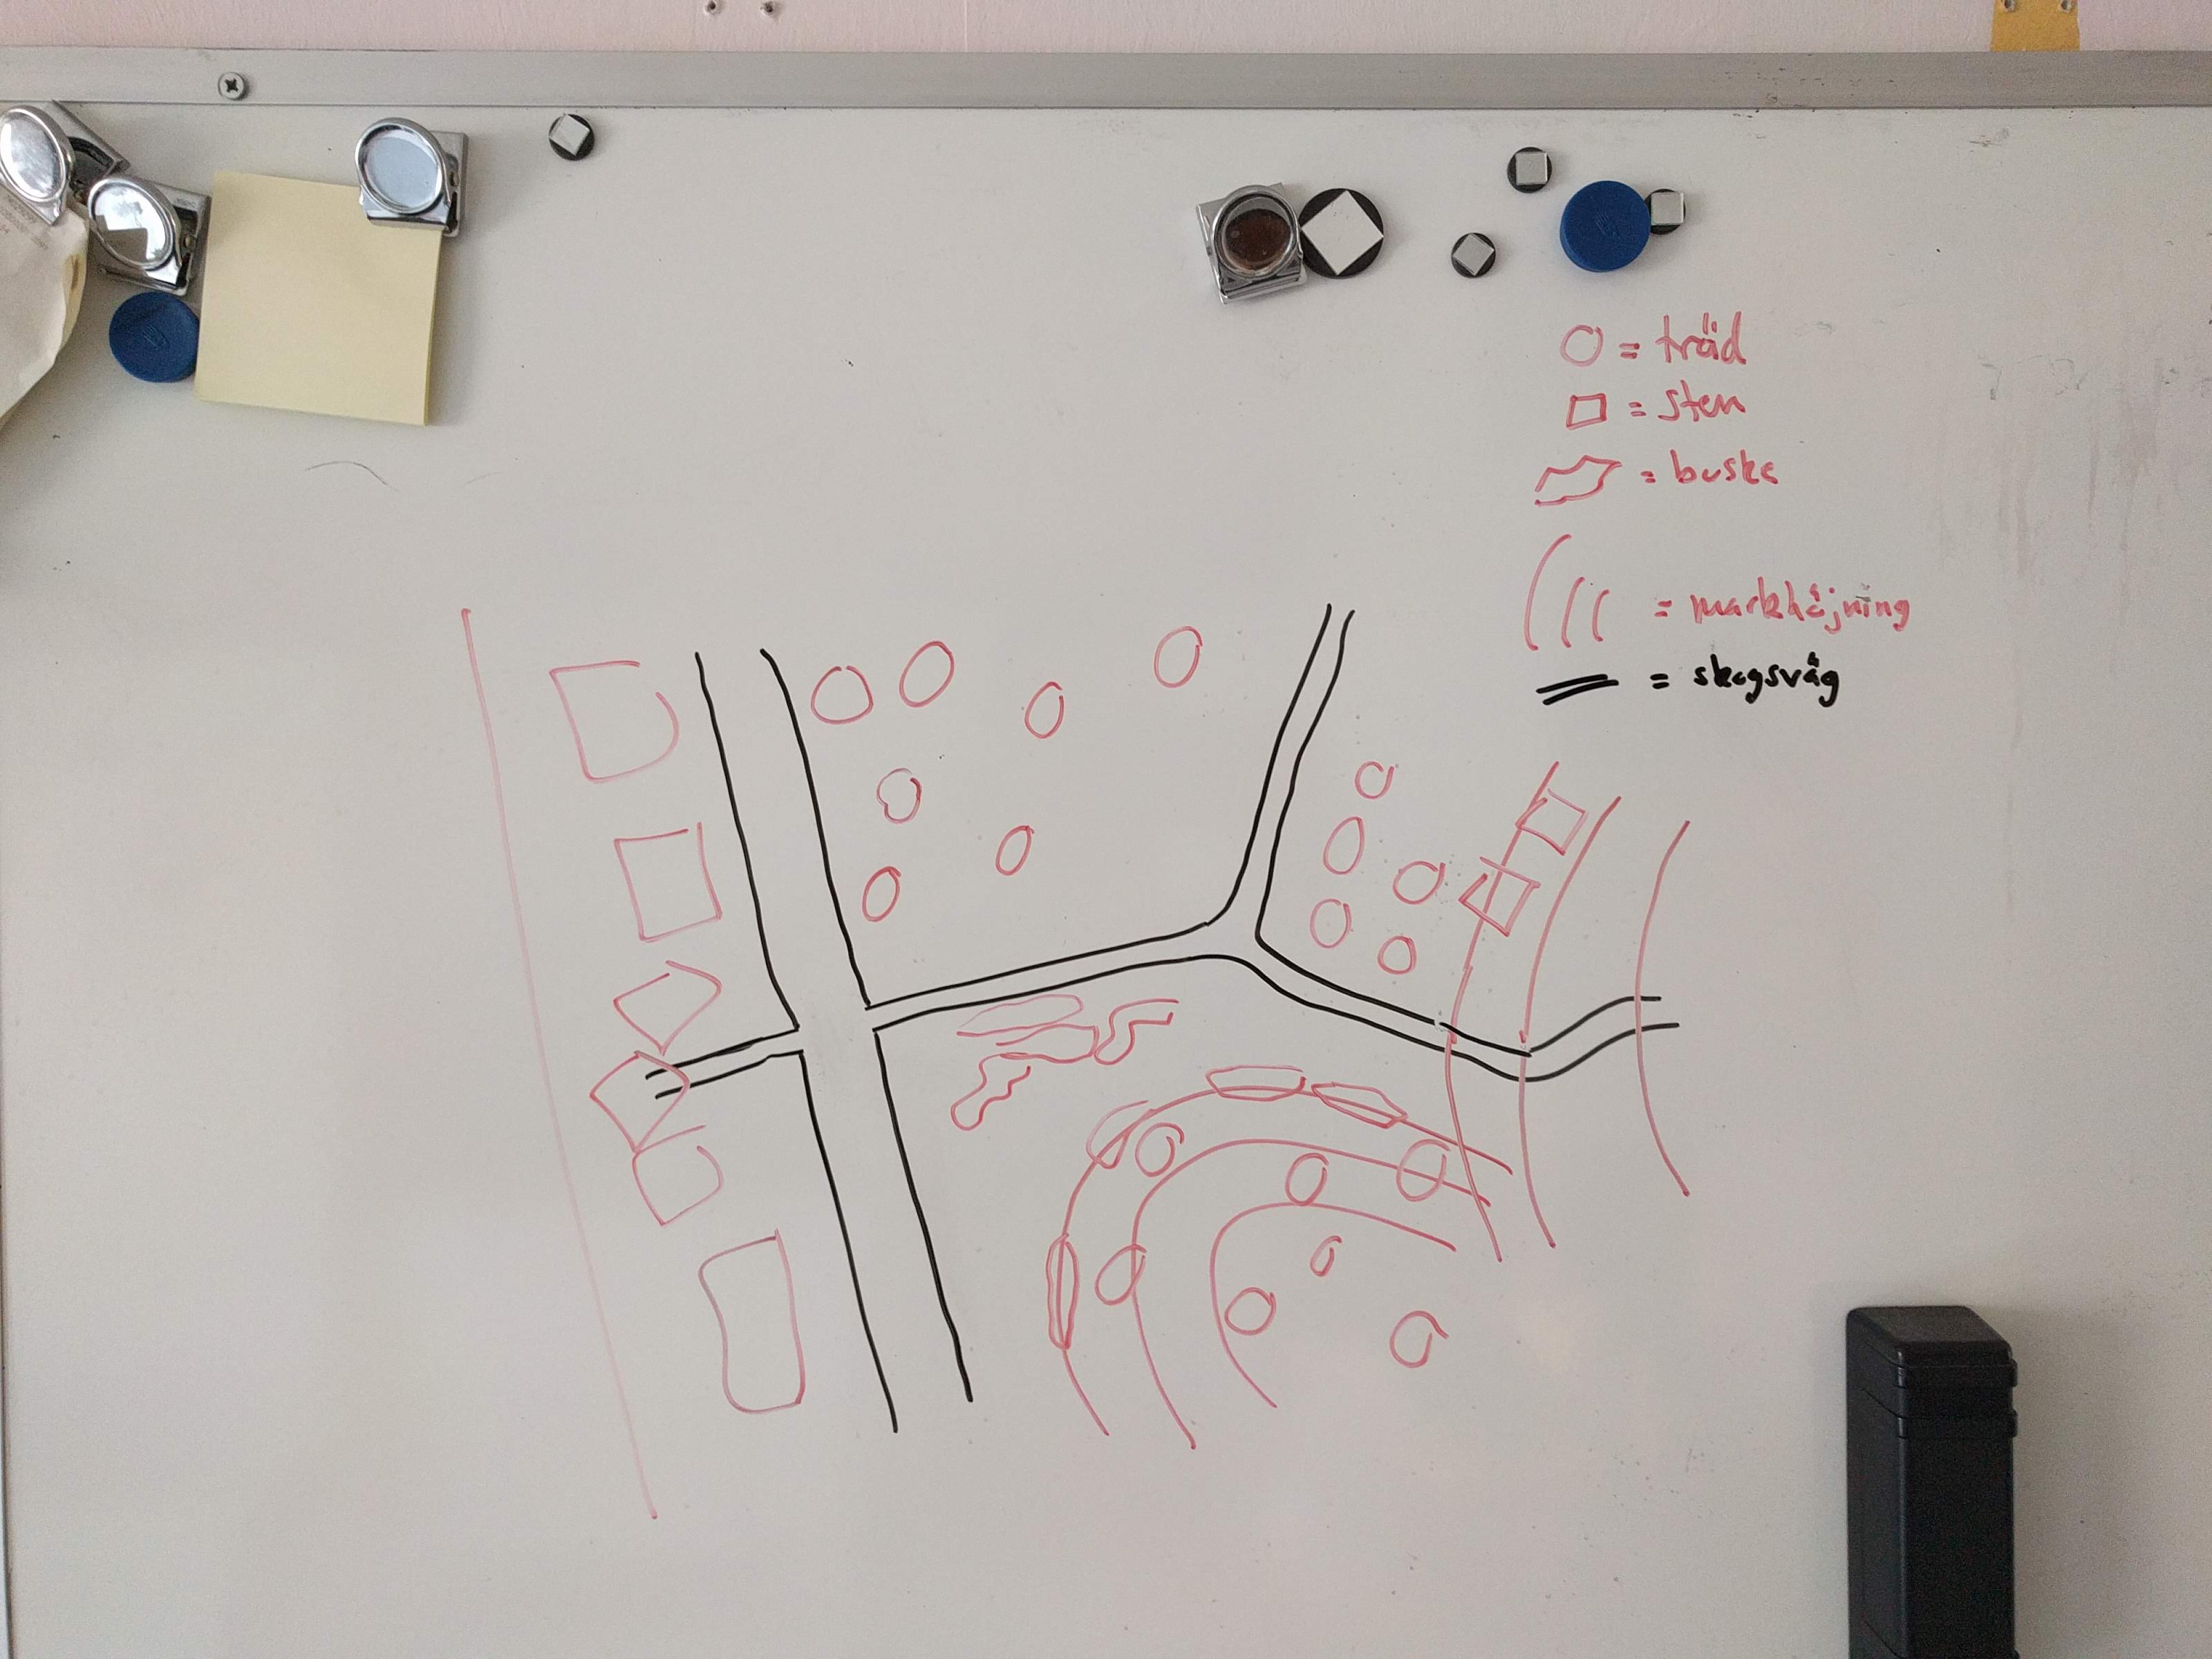 = träd
= sten
= buske
= markhöjning
= skogsväg